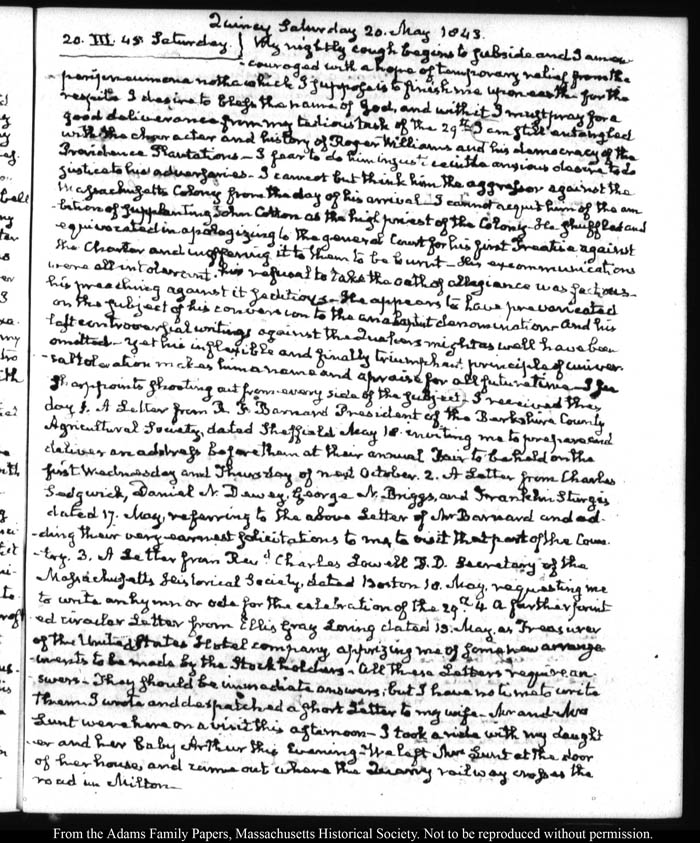 Quincy Saturday 20. May 1843.
20. III. 45. Saturday. } My nightly cough begins to subside and I am en
couraged with a hope of temporary relief from the
peripneumonia notha which I suppose is to finish me upon earth for the
respite I desire to bless the name of God, and with it I must pray for a
good deliverance from my tedious task of the 29th. I am still entangled
with the character and history of Roger Williams and his democracy of the
Providence Plantations - I fear to do him injustice in the anxious desire to do
justice to his adversaries. I cannot but think him the aggressor against the
Massachusetts Colony from the day of his arrival - I cannot acquit him of the am
bition of supplanting John Cotton as the high priest of the Colony. He shuffled and
equivocated in apologizing to the general Court for his first Treatise against
the Charter and in offering it to them to be burnt - His excommunications
were all intolerant, his refusal to take the oath of allegiance was factious -
his preaching against it factious - He appears to have prevaricated
on the subject of his conversion to the anabaptist denomination - And his
last controversial writings against the Quakers might as well have been
omitted - Yet his inflexible and finally triumphant principle of univer-
sal toleration makes him a name and a praise for all future time - I see
appoints shooting out from every side of the subject - I received this
day 1. A Letter from R. F. Barnard President of the Berkshire County
Agricultural Society, dated Sheffield May 18. inviting me to prepare and
deliver an address before them at their annual Fair to be held on the
first Wednesday and Thursday of next October. 2. A Letter from Charles
Sedgwick, Daniel N. Dewey, George N. Briggs, and Franklin Sturgis
dated 17. May, referring to the above Letter of Mr Barnard and ad-
-ding their very earnest solicitations to me to visit that part of the Coun
-try. 3. A Letter from Revd. Charles Lowell D.D. Secretary of the
Massachusetts Historical Society, dated Boston 18. May, requesting me
to write an hymn or ode for the celebration of the 29th. 4 a further print
ed circular Letter from Ellis Gray Loring dated 13. May, as Treasurer
of the United States Hotel company, apprizing me of some new arrange
ments to be made by the Stockholders - All these Letters require an
swers - They should be immediate answers; but I have no time to write
them. I wrote and despatched a short Letter to my wife. Mr and Mrs
Lunt were here on a visit this afternoon - I took a ride with my daught
-er and her Baby Arthur this Evening. We left Mrs Lunt at the door
of her house, and came out where the Quarry railway crosses the
road in Milton -
From the Adams Family Papers, Massachusetts Historical Society. Not to be reproduced without permission.